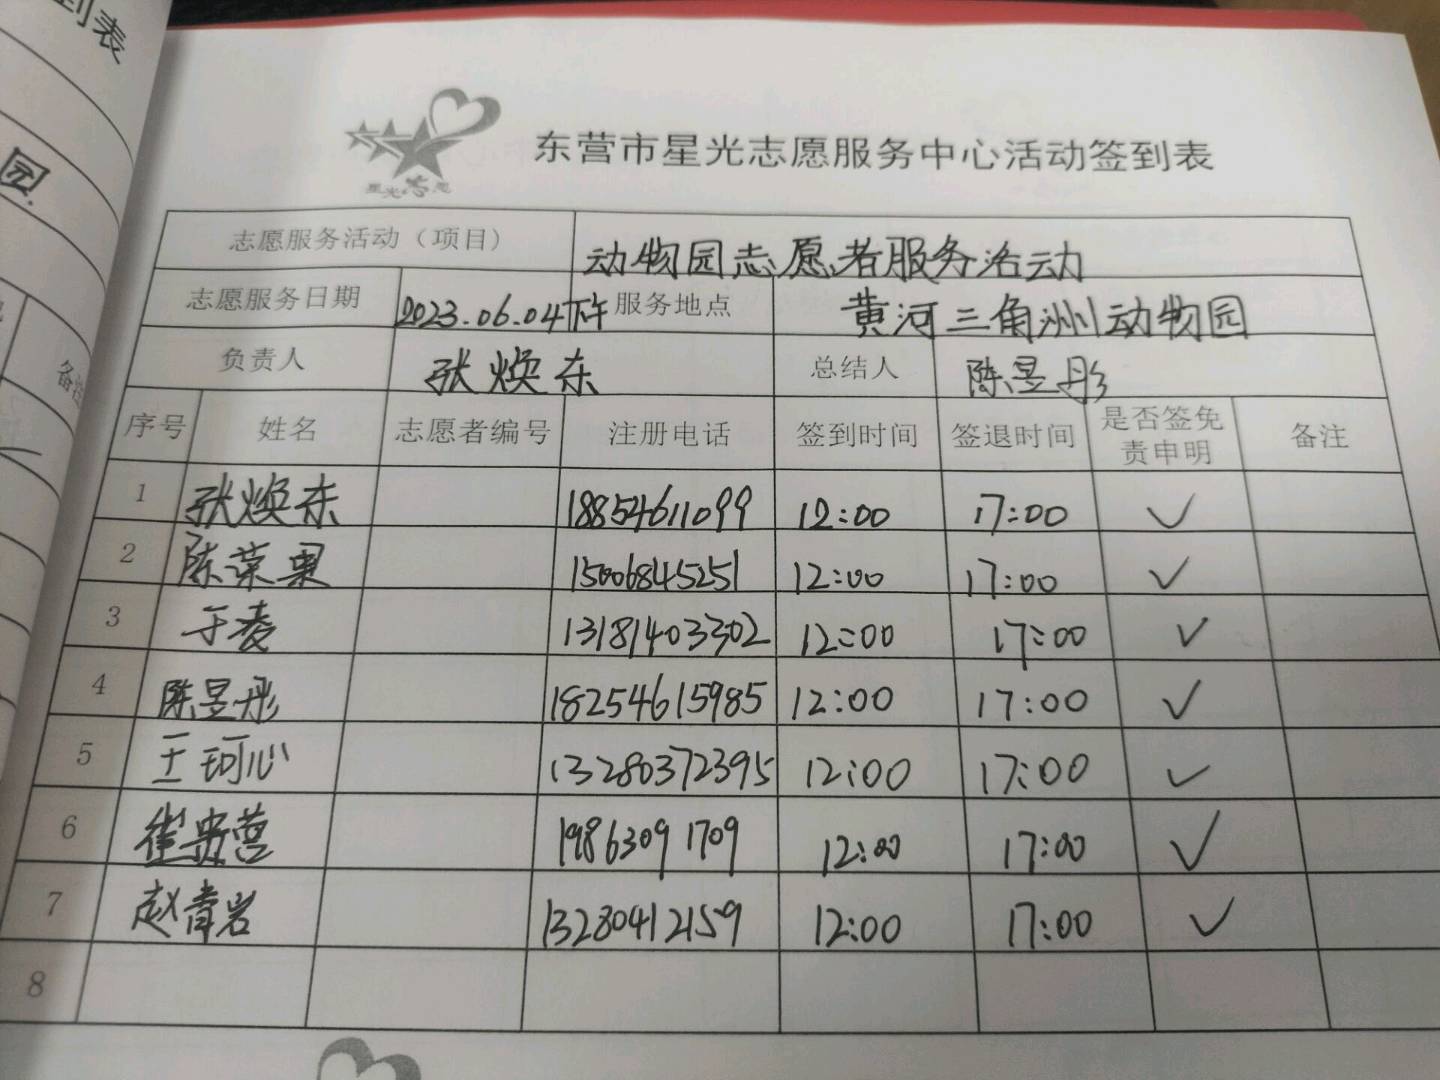 到表
园
备注
星光志愿
东营市星光志愿服务中心活动签到表
志愿服务活动（项目） 动物园志愿者服务活动
志愿服务日期 2023.06.04下午 服务地点 黄河三角洲动物园
负责人 张焕东 总结人 陈昱彤
序号 姓名 志愿者编号 注册电话 签到时间 签退时间 是否签免责申明 备注
1 张焕东 18854611099 12:00 17:00 ✓
2 陈荣果 15006845251 12:00 17:00 ✓
3 于凌 13181403302 12:00 17:00 ✓
4 陈昱彤 18254615985 12:00 17:00 ✓
5 王珂心 13280372395 12:00 17:00 ✓
6 崔贵营 19863091709 12:00 17:00 ✓
7 赵青岩 13280412159 12:00 17:00 ✓
8